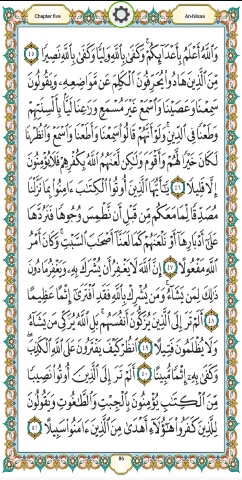 Chapter five
An-Nisaa
وَٱللَّهُ أَعْلَمُ بِأَعْدَآئِكُمْ ۚ وَكَفَىٰ بِٱللَّهِ وَلِيًّا وَكَفَىٰ بِٱللَّهِ نَصِيرًا ٤٥
مِّنَ ٱلَّذِينَ هَادُوا۟ يُحَرِّفُونَ ٱلْكَلِمَ عَن مَّوَاضِعِهِۦ وَيَقُولُونَ
سَمِعْنَا وَعَصَيْنَا وَٱسْمَعْ غَيْرَ مُسْمَعٍ وَرَٰعِنَا لَيًّۢا بِأَلْسِنَتِهِمْ
وَطَعْنًا فِى ٱلدِّينِ ۚ وَلَوْ أَنَّهُمْ قَالُوا۟ سَمِعْنَا وَأَطَعْنَا وَٱسْمَعْ وَٱنظُرْنَا
لَكَانَ خَيْرًا لَّهُمْ وَأَقْوَمَ وَلَٰكِن لَّعَنَهُمُ ٱللَّهُ بِكُفْرِهِمْ فَلَا يُؤْمِنُونَ
إِلَّا قَلِيلًا ٤٦ يَٰٓأَيُّهَا ٱلَّذِينَ أُوتُوا۟ ٱلْكِتَٰبَ ءَامِنُوا۟ بِمَا نَزَّلْنَا
مُصَدِّقًا لِّمَا مَعَكُم مِّن قَبْلِ أَن نَّطْمِسَ وُجُوهًا فَنَرُدَّهَا
عَلَىٰٓ أَدْبَارِهَآ أَوْ نَلْعَنَهُمْ كَمَا لَعَنَّآ أَصْحَٰبَ ٱلسَّبْتِ ۚ وَكَانَ أَمْرُ
ٱللَّهِ مَفْعُولًا ٤٧ إِنَّ ٱللَّهَ لَا يَغْفِرُ أَن يُشْرَكَ بِهِۦ وَيَغْفِرُ مَا دُونَ
ذَٰلِكَ لِمَن يَشَآءُ ۚ وَمَن يُشْرِكْ بِٱللَّهِ فَقَدِ ٱفْتَرَىٰٓ إِثْمًا عَظِيمًا
٤٨ أَلَمْ تَرَ إِلَى ٱلَّذِينَ يُزَكُّونَ أَنفُسَهُم ۚ بَلِ ٱللَّهُ يُزَكِّى مَن يَشَآءُ
وَلَا يُظْلَمُونَ فَتِيلًا ٤٩ ٱنظُرْ كَيْفَ يَفْتَرُونَ عَلَى ٱللَّهِ ٱلْكَذِبَ ۖ
وَكَفَىٰ بِهِۦٓ إِثْمًا مُّبِينًا ٥٠ أَلَمْ تَرَ إِلَى ٱلَّذِينَ أُوتُوا۟ نَصِيبًا
مِّنَ ٱلْكِتَٰبِ يُؤْمِنُونَ بِٱلْجِبْتِ وَٱلطَّٰغُوتِ وَيَقُولُونَ
لِلَّذِينَ كَفَرُوا۟ هَٰٓؤُلَآءِ أَهْدَىٰ مِنَ ٱلَّذِينَ ءَامَنُوا۟ سَبِيلًا ٥١
86